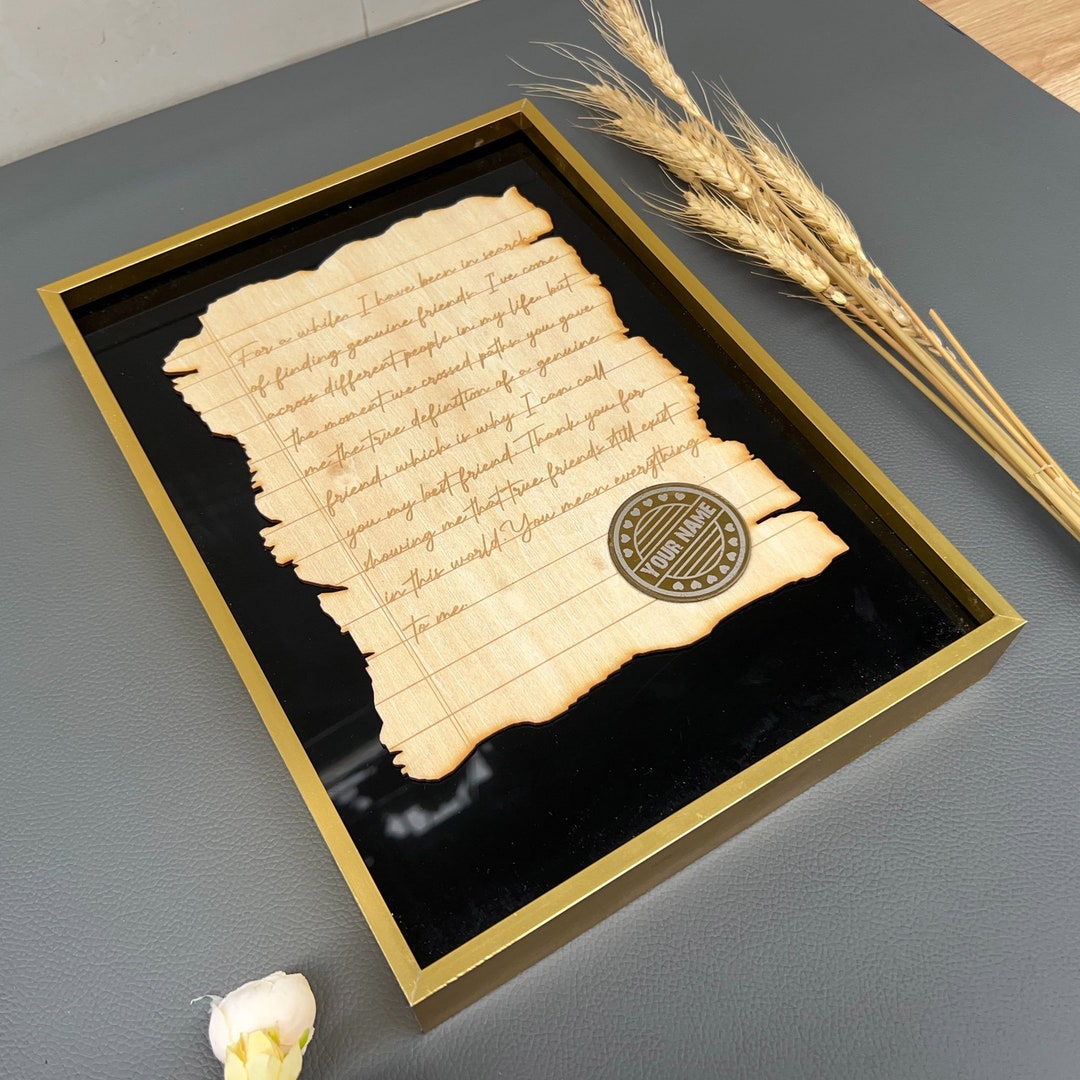 For a while. I have been in search
of finding genuine friends. I've come
across different people in my life. but
the moment we crossed paths. you gave
me the true definition of a genuine
friend. which is why. I can call
you my best friend. Thank you for
showing me that true friends still exist
in this world. You mean everything
to me.
YOUR NAME